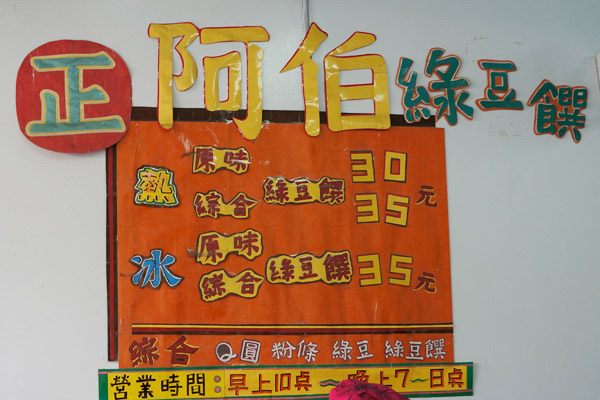 正 阿伯 綠豆饌
熱 原味 綠豆饌 30元
綜合 35
冰 原味 綠豆饌 35元
綜合
綜合 Q圓 粉條 綠豆 綠豆饌
營業時間:早上10点~晚上7~8点